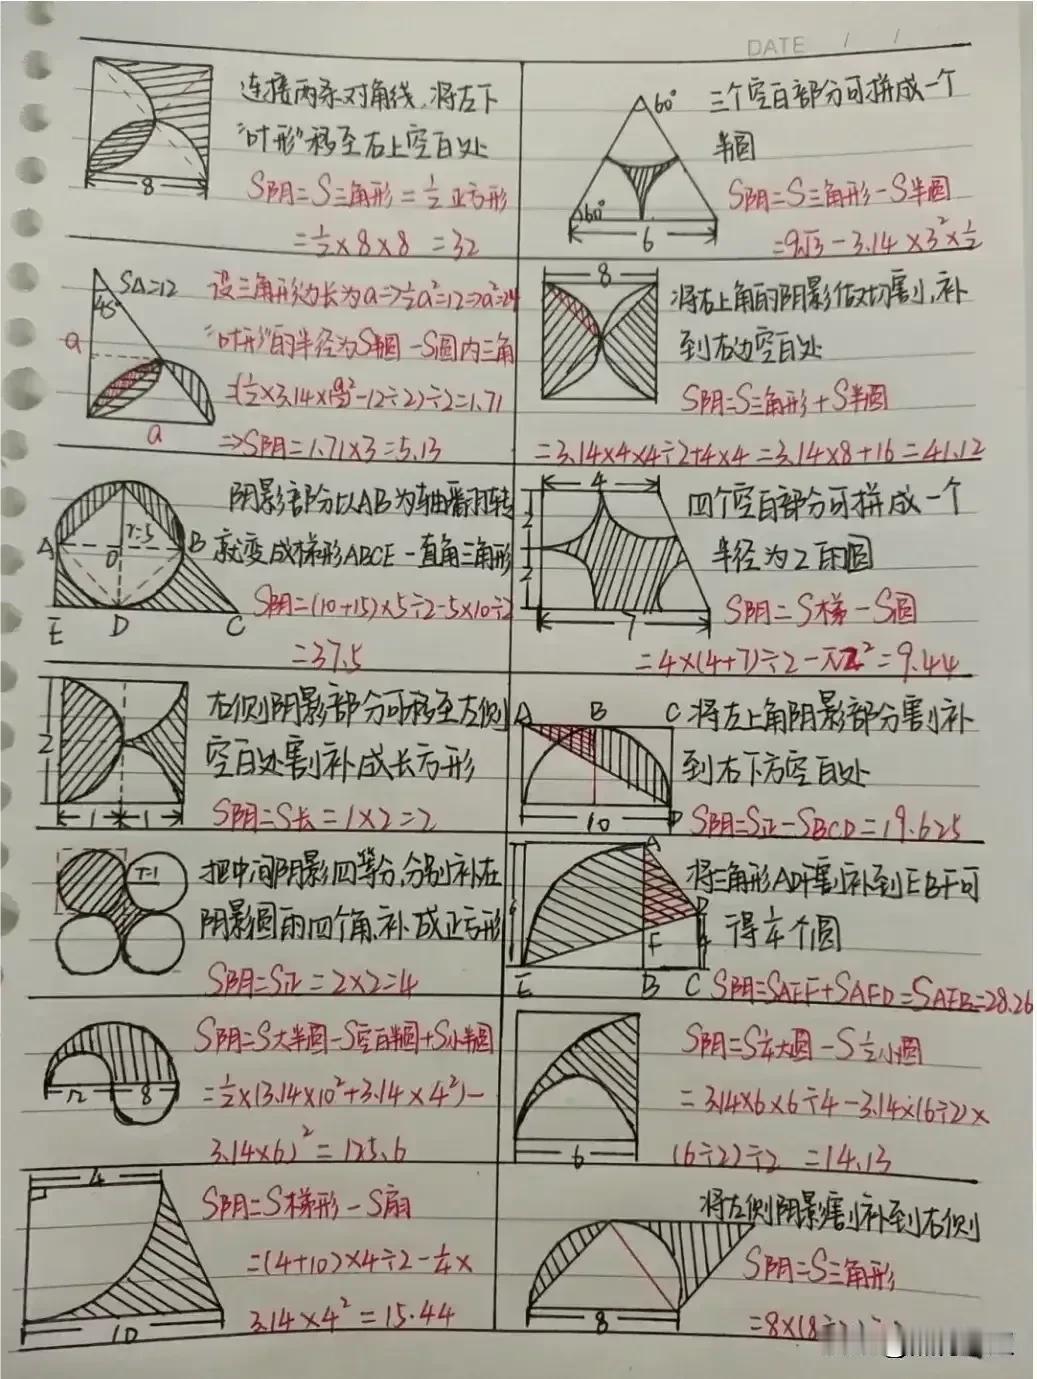 DATE / /
连接两条对角线,将左下
"叶形"移至右上空白处
S阴=S三角形=½正方形
=½×8×8 =32
8
60°
60°
6
三个空白部分可拼成一个
半圆
S阴=S三角形-S半圆
=9√3-3.14×3²×½
S△=12
45°
a
a
设三角形边长为a=>½a²=12=>a²=24
"叶形"的半径为S半圆-S圆内三角
-12÷2)÷2=1.71
=>S阴=1.71×3=5.13
8
将右上角的阴影做切割,补
到右边空白处
S阴=S三角形+S半圆
=3.14×4×4÷2+4×4=3.14×8+16=41.12
A
B
O
r=5
E
D
C
阴影部分以AB为轴翻转
就变成梯形ABCE-直角三角形
S阴=(10+15)×5÷2-5×10÷2
=37.5
4
2
2
7
四个空白部分可拼成一个
半径为2的圆
S阴=S梯-S圆
=4×(4+7)÷2-π2²=9.44
2
1
1
右侧阴影部分可移至左侧
空白处割补成长方形
S阴=S长=1×2=2
A
B
C
D
10
将左上角阴影部分割补
到右下方空白处
S阴=S正-SBCD=19.625
r=1
把中间阴影四等分,分别补在
阴影圆的四个角,补成正方形
S阴=S正=2×2=4
A
D
F
E
B
C
将三角形ADF割补到EBF可
得¼个圆
S阴=SAEF+SAFD=SAEB=28.26
12
8
S阴=S大半圆-S空白半圆+S小半圆
=½×(3.14×10²+3.14×4²)-
3.14×6)²=125.6
6
S阴=S¼大圆-S½小圆
=3.14×6×6÷4-3.14×(6÷2)×
(6÷2)÷2 =14.13
4
10
S阴=S梯形-S扇
=(4+10)×4÷2-¼×
3.14×4²=15.44
8
将左侧阴影割补到右侧
S阴=S三角形
=8×(8÷2)